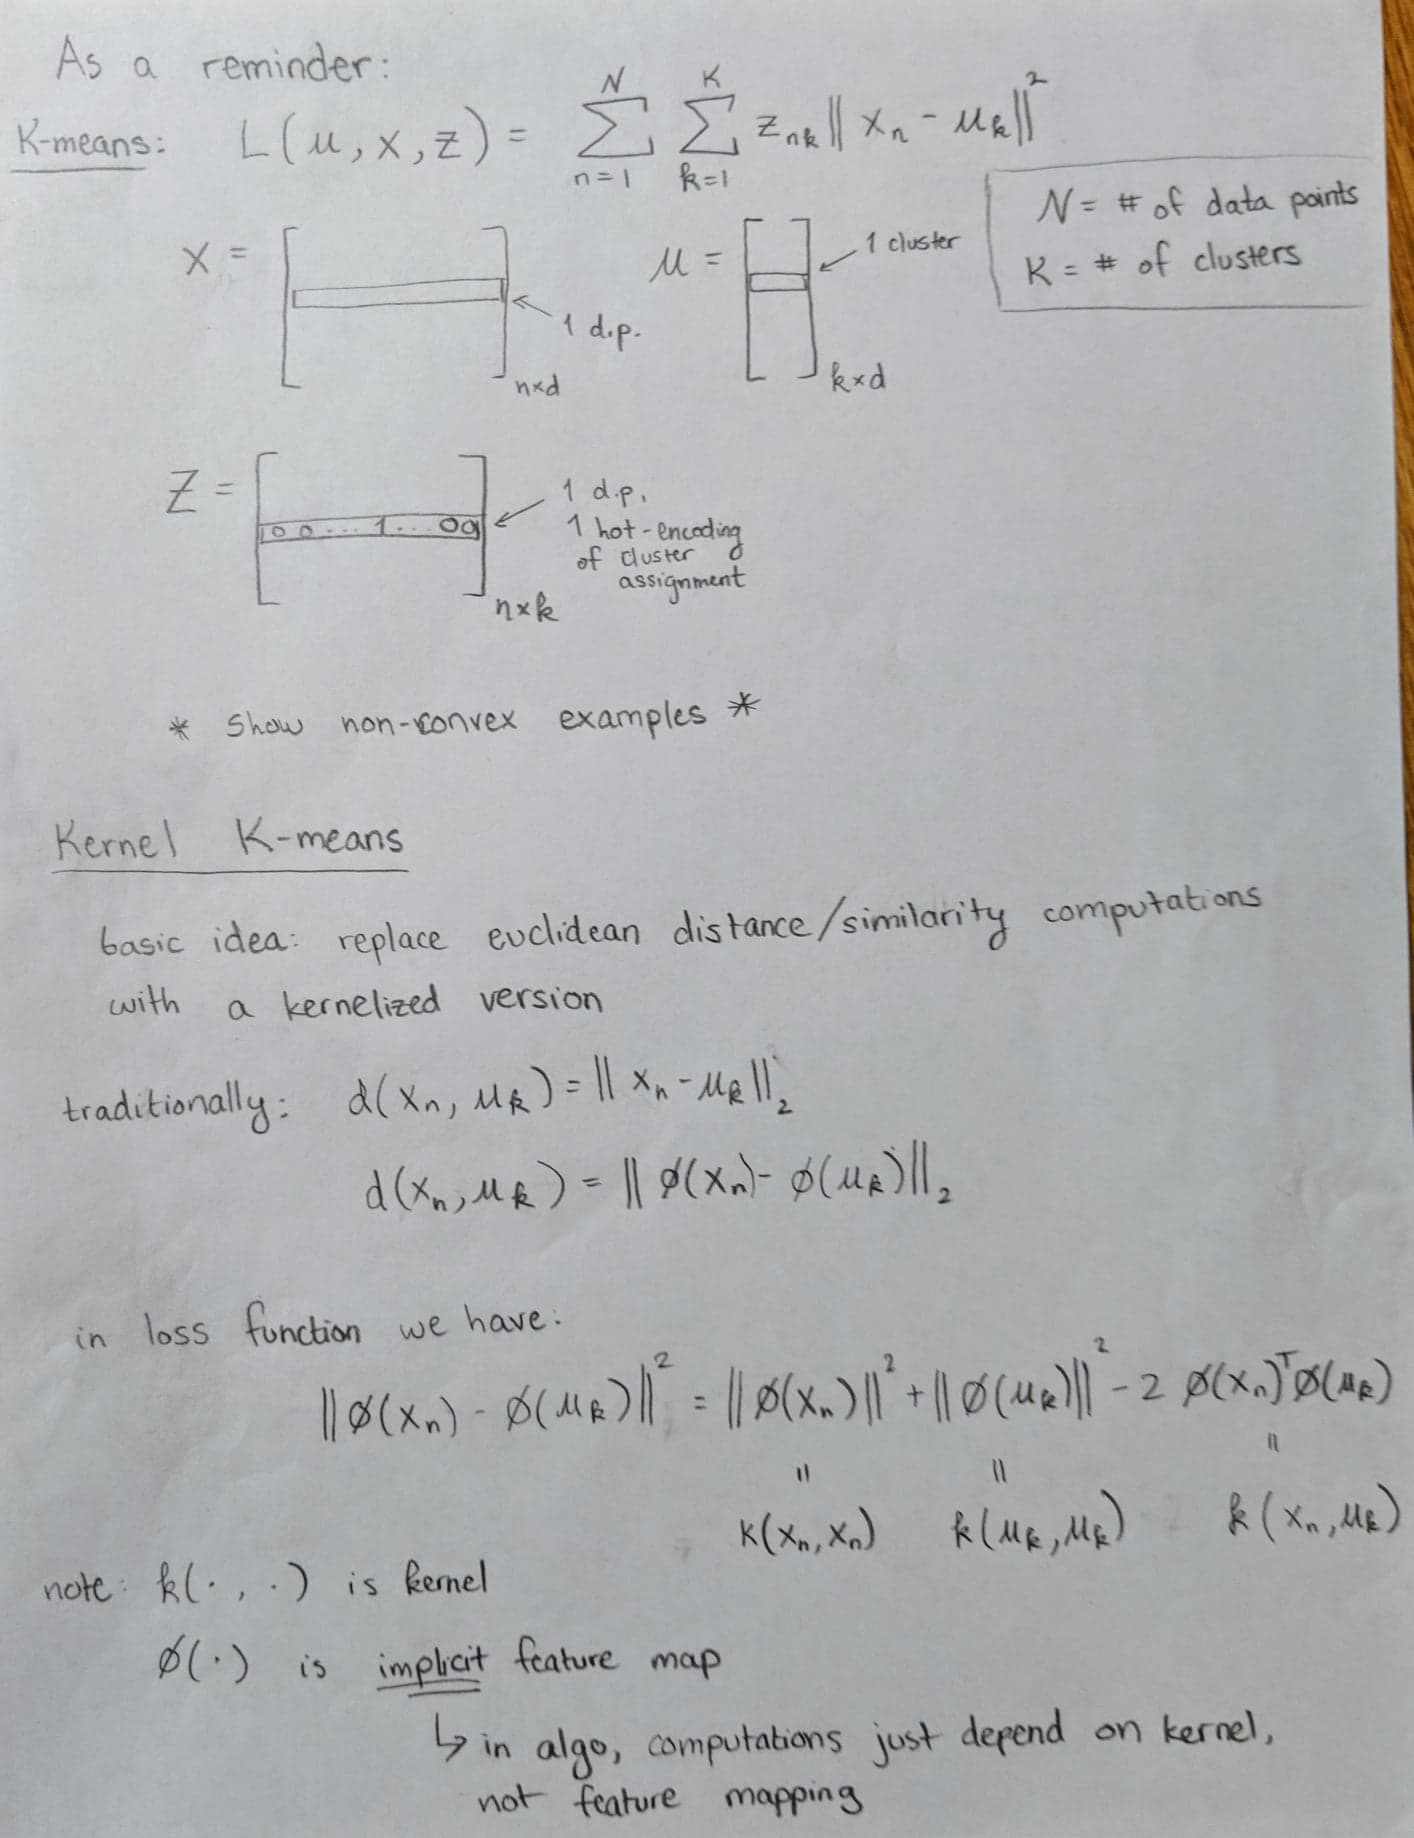 As a reminder:
K-means: L(μ, x, z) = Σ_{n=1}^{N} Σ_{k=1}^{K} z_{nk} || x_n - μ_k ||²
N = # of data points
K = # of clusters
X = [ ]_{n×d} ← 1 d.p.
μ = [ ]_{k×d} ← 1 cluster
Z = [ 0 0 ... 1 ... 0 0 ]_{n×k} ← 1 d.p.,
1 hot-encoding
of cluster
assignment
* Show non-convex examples *
Kernel K-means
basic idea: replace euclidean distance/similarity computations
with a kernelized version
traditionally: d(x_n, μ_k) = || x_n - μ_k ||_2
d(x_n, μ_k) = || ø(x_n) - ø(μ_k) ||_2
in loss function we have:
|| ø(x_n) - ø(μ_k) ||² = || ø(x_n) ||² + || ø(μ_k) ||² - 2 ø(x_n)^T ø(μ_k)
= = =
k(x_n, x_n) k(μ_k, μ_k) k(x_n, μ_k)
note: k(·, ·) is kernel
ø(·) is implicit feature map
↳ in algo, computations just depend on kernel,
not feature mapping